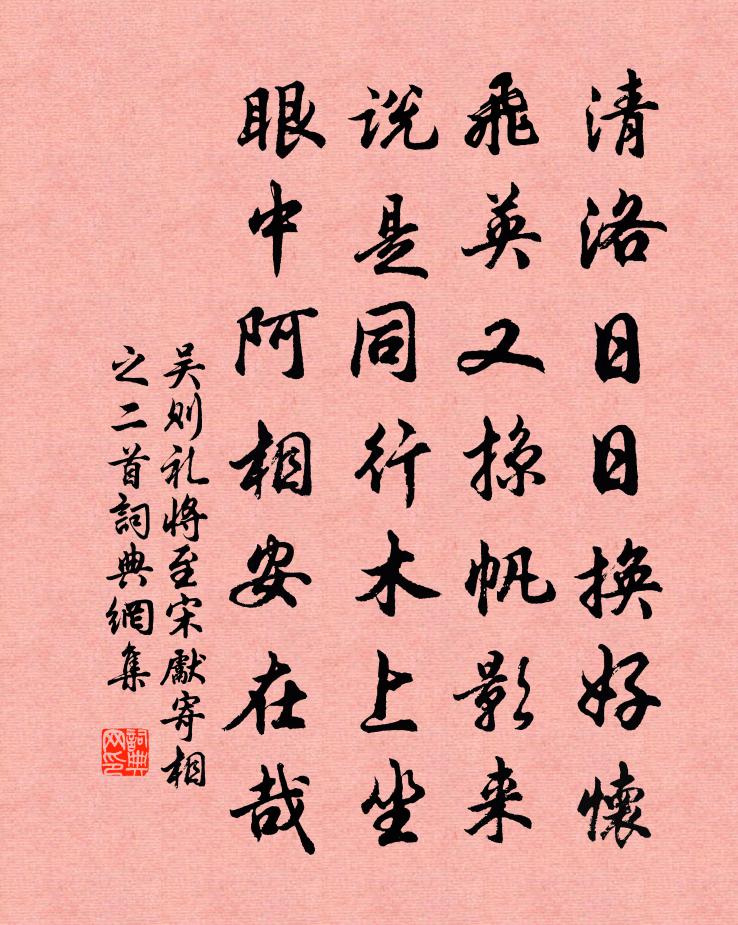 清洛日日换好懷
飛英又掠帆影来
说是同行木上坐
眼中阿相安在哉
吴则礼將至宋獻寄相
之二首詞典網集
詞典网印